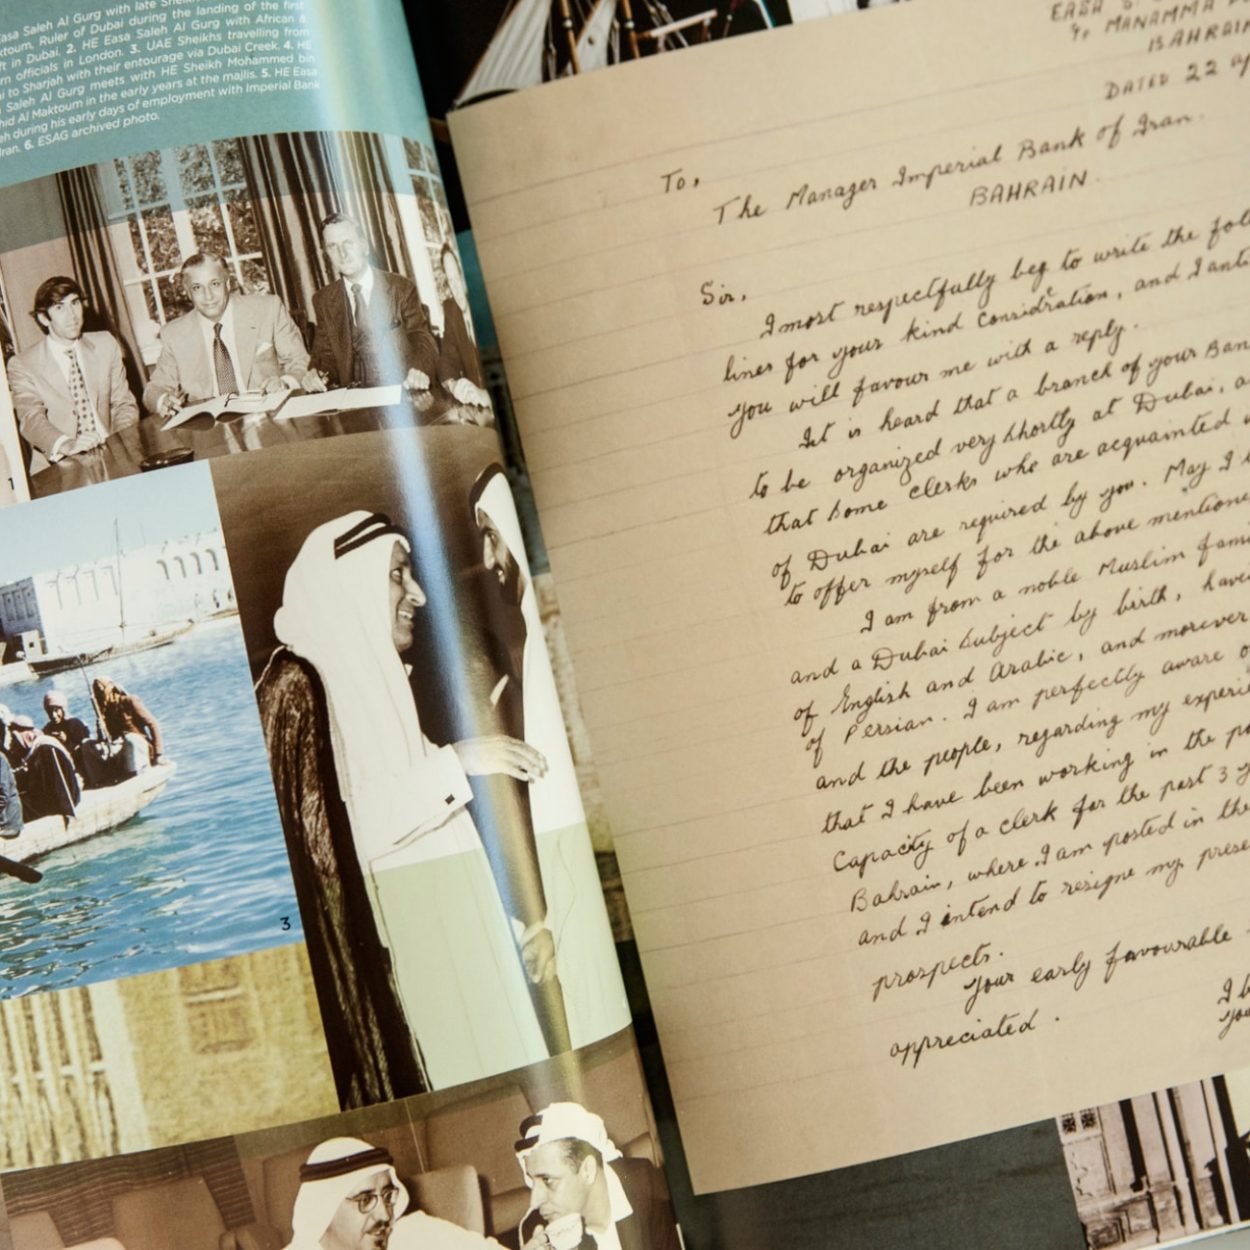 Easa Saleh Al Gurg with late Sheikh
ktoum, Ruler of Dubai during the landing of the first
ft in Dubai. 2. HE Easa Saleh Al Gurg with African &
rn officials in London. 3. UAE Sheikhs travelling from
ai to Sharjah with their entourage via Dubai Creek. 4. HE
Saleh Al Gurg meets with HE Sheikh Mohammed bin
hid Al Maktoum in the early years at the majlis. 5. HE Easa
eh during his early days of employment with Imperial Bank
Iran. 6. ESAG archived photo.
1
3
EASA S.
% MANAMMA
BAHRAIN
DATED 22
To,
The Manager Imperial Bank of Iran.
BAHRAIN.
Sir,
I most respectfully beg to write the foll
lines for your kind considration, and I anti
you will favour me with a reply.
It is heard that a branch of your Ban
to be organized very shortly at Dubai, a
that some clerks who are acquainted
of Dubai are required by you. May I
to offer myself for the above mentione
I am from a noble Muslim fam
and a Dubai subject by birth, have
of English and Arabic, and morever
of Persian. I am perfectly aware o
and the people, regarding my experi
that I have been working in the po
Capacity of a clerk for the past 3 y
Bahrain, where I am posted in the
and I intend to resigne my prese
prospects.
Your early favourable
appreciated.
I b
You